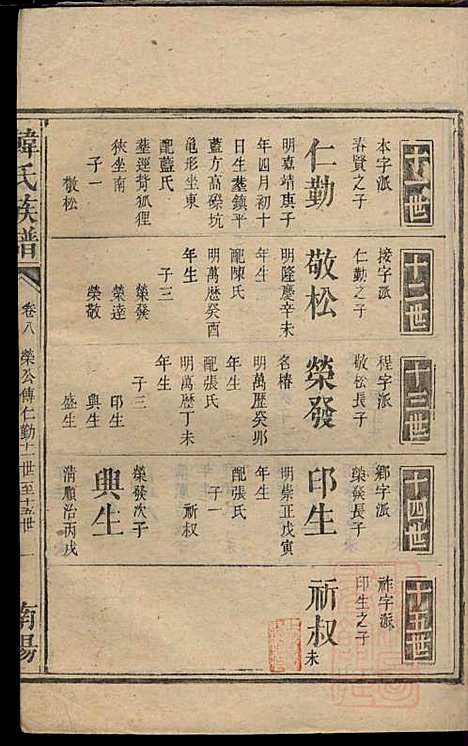 十一世
本字派
春賢之子
仁勤
明嘉靖庚子
年四月初十
日生墓鎮平
藍方高磜坑
龜形坐東
配藍氏
墓逕背狐狸
俠坐南
子一
敬松
十二世
接字派
仁勤之子
敬松
明隆慶辛未
年生
配陳氏
明萬曆癸酉
年生
子三
榮發
榮達
榮敬
十三世
程字派
敬松長子
榮發
名椿
明萬曆癸卯
年生
配張氏
明萬曆丁未
年生
子三
印生
興生
盛生
十四世
鄉字派
榮發長子
印生
明崇正戊寅
年生
配張氏
子一
祈叔
榮發次子
興生
清順治丙戌
十五世
祚字派
印生之子
祈叔
未
韓氏族譜
卷八
榮公傳仁勤十一世至十五世
一
南陽